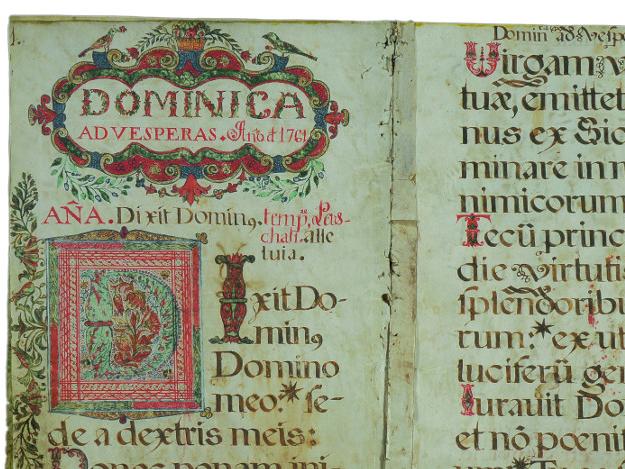 1.
DOMINICA
AD VESPERAS. Año d 1761
AÑA. Dixit Domin9. temp. Pas-
chali. alle
luia.
D Ixit Do-
min9
Domino
meo:* se-
de a dextris meis:
Donec ponam ini-
Domin ad Vespe
Uirgam v
tuæ, emittet
nus ex Sio
minare in m
nimicorum
Tecũ princ
die virtutis
splendoribu
rum:* ex ut
luciferũ gen
Iurauit Do
et nõ pœnit